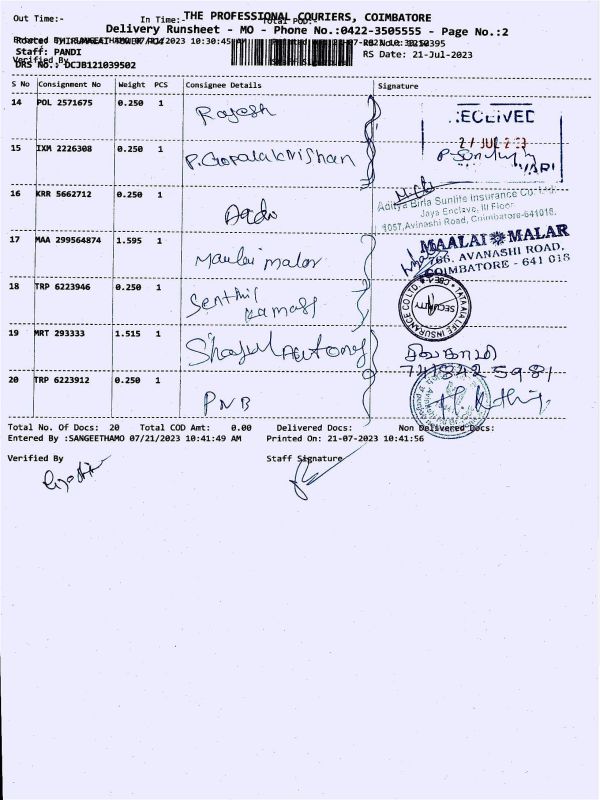 Out Time:- In Time:- THE PROFESSIONAL COURIERS, COIMBATORE
Delivery Runsheet - MO - Phone No.:0422-3505555 - Page No.:2
Staff: PANDI
RS Date: 21-Jul-2023
DRS No.: DCJB121039502
S No Consignment No Weight PCS Consignee Details Signature
14 POL 2571675 0.250 1 Rajesh
RECEIVED
15 IXM 2226308 0.250 1 P. Gopalakrishnan
16 KRR 5662712 0.250 1
Aditya Birla Sunlife Insurance Co. Ltd.
Jaya Enclave, III Floor
1057, Avinashi Road, Coimbatore-641018.
17 MAA 299564874 1.595 1 Maalai malar
MAALAI MALAR
766, AVANASHI ROAD,
COIMBATORE - 641 018
18 TRP 6223946 0.250 1 Senthil
TATA AIA LIFE INSURANCE CO LTD
SECURITY
19 MRT 293333 1.515 1
20 TRP 6223912 0.250 1 PNB
Total No. Of Docs: 20 Total COD Amt: 0.00 Delivered Docs: Non Delivered Docs:
Entered By :SANGEETHAMO 07/21/2023 10:41:49 AM Printed On: 21-07-2023 10:41:56
Verified By Staff Signature